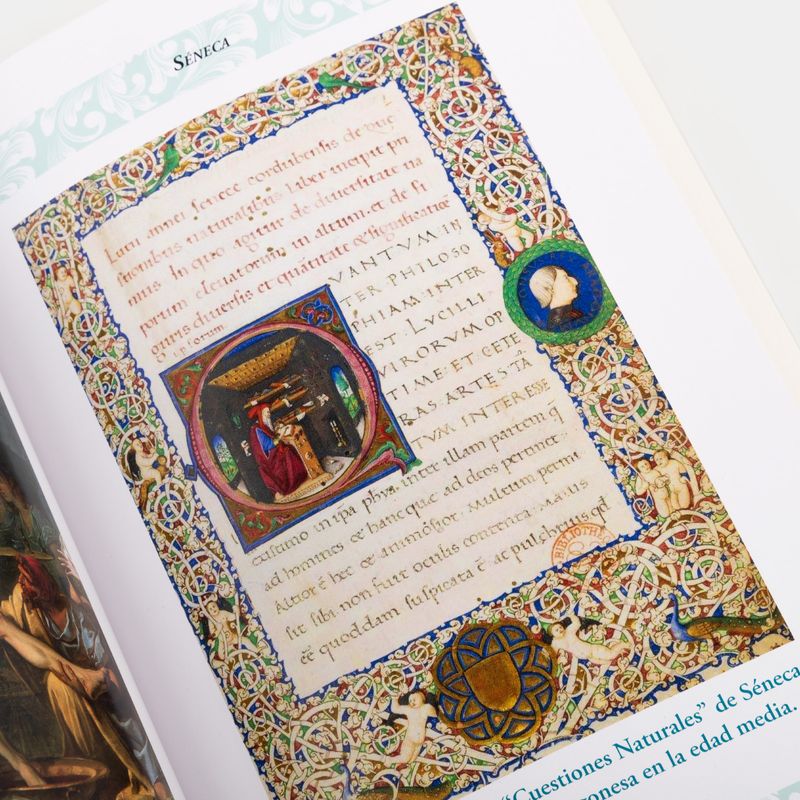 SÉNECA
Lucii annei senece cordubensis de que
stionibus naturalibus liber incipit pri
mus. In quo agitur de diuersitate na
porum eleuatorum in altum. et de fi
guris diuersis et quātitate & significatiōe
ipsorum
QVANTVM IN
TER PHILOSO
PHIAM INTER
EST. LVCILLI
VIRORVM OP
TIME. ET CETE
RAS. ARTES TĀ
TVM INTERESSE
existimo in ipa phya. inter illam partem q̄
ad homines et hanc que ad deos pertinet.
Altior ē hec et animosior. Multum permi
sit sibi non fuit oculis contenta. Maius
eē quoddam suspicata ē ac pulchrius qd
BIBLIOTHE
“Cuestiones Naturales” de Séneca
onesa en la edad media.